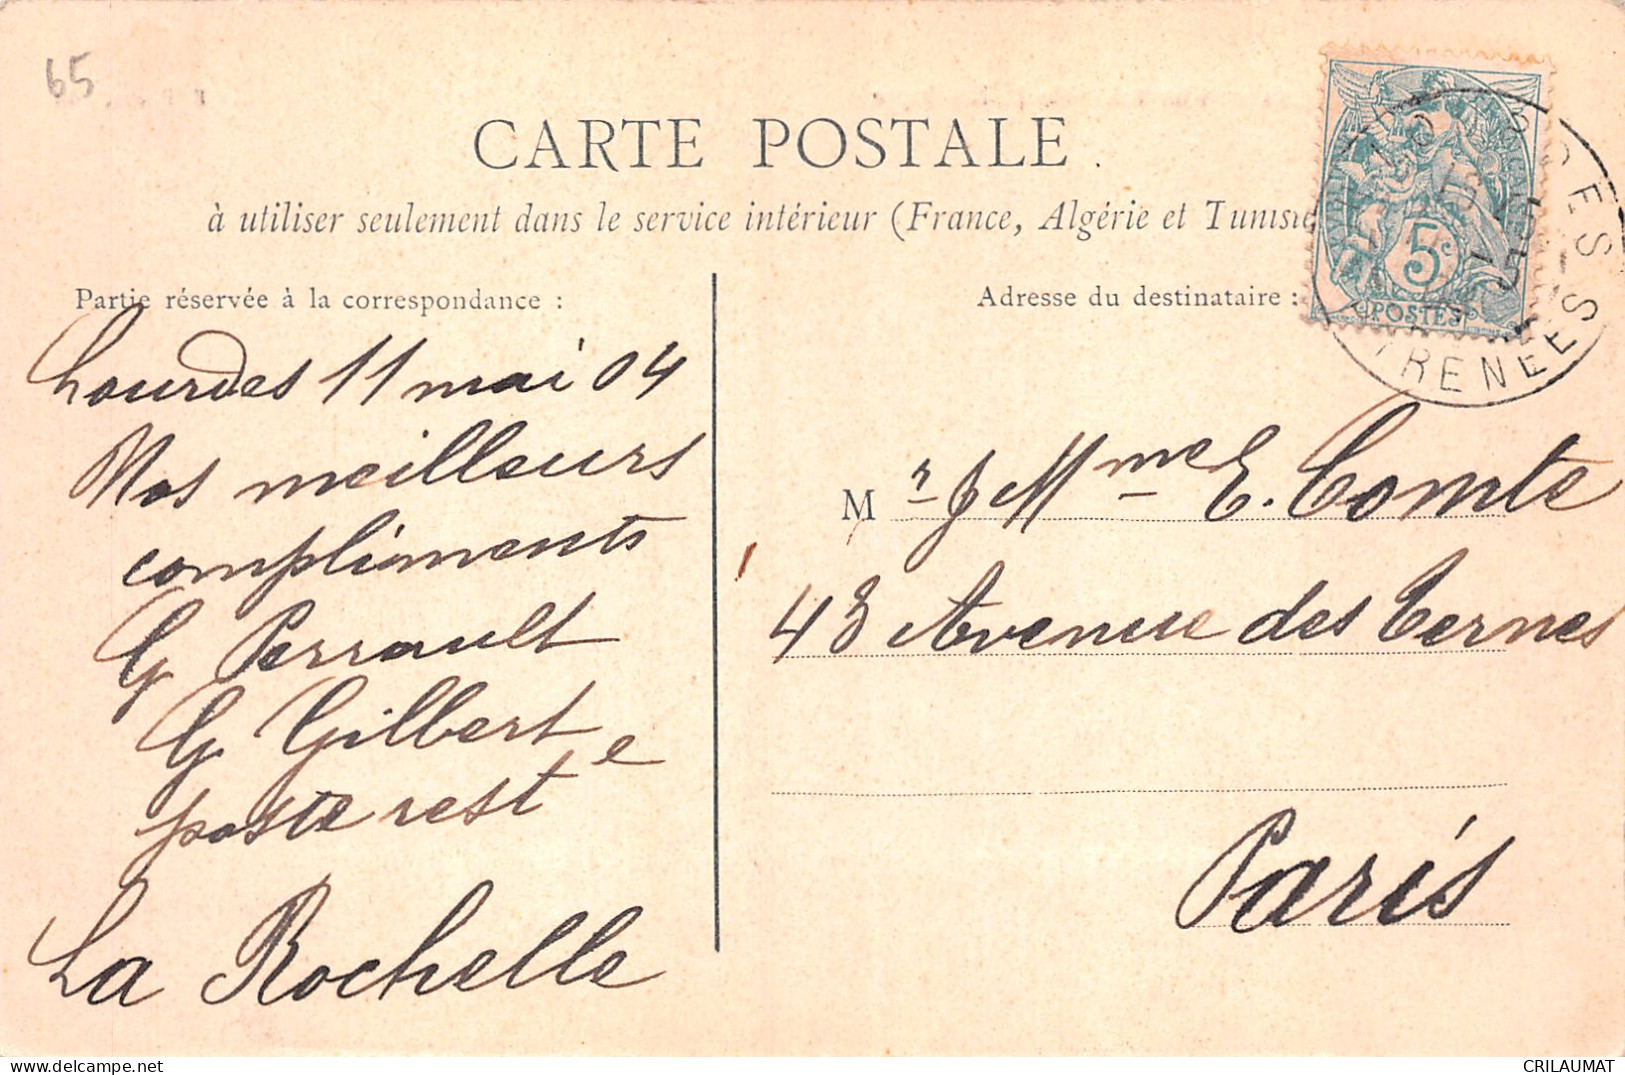 65
CARTE POSTALE
à utiliser seulement dans le service intérieur (France, Algérie et Tunisie
Partie réservée à la correspondance :
Lourdes 11 mai 04
Nos meilleurs
compliments
G Perrault
G Gilbert
poste rest e
La Rochelle
Adresse du destinataire :
5c
POSTES
PYRENEES
M r & Mme E. Comte
43 Avenue des Ternes
Paris
CRILAUMAT